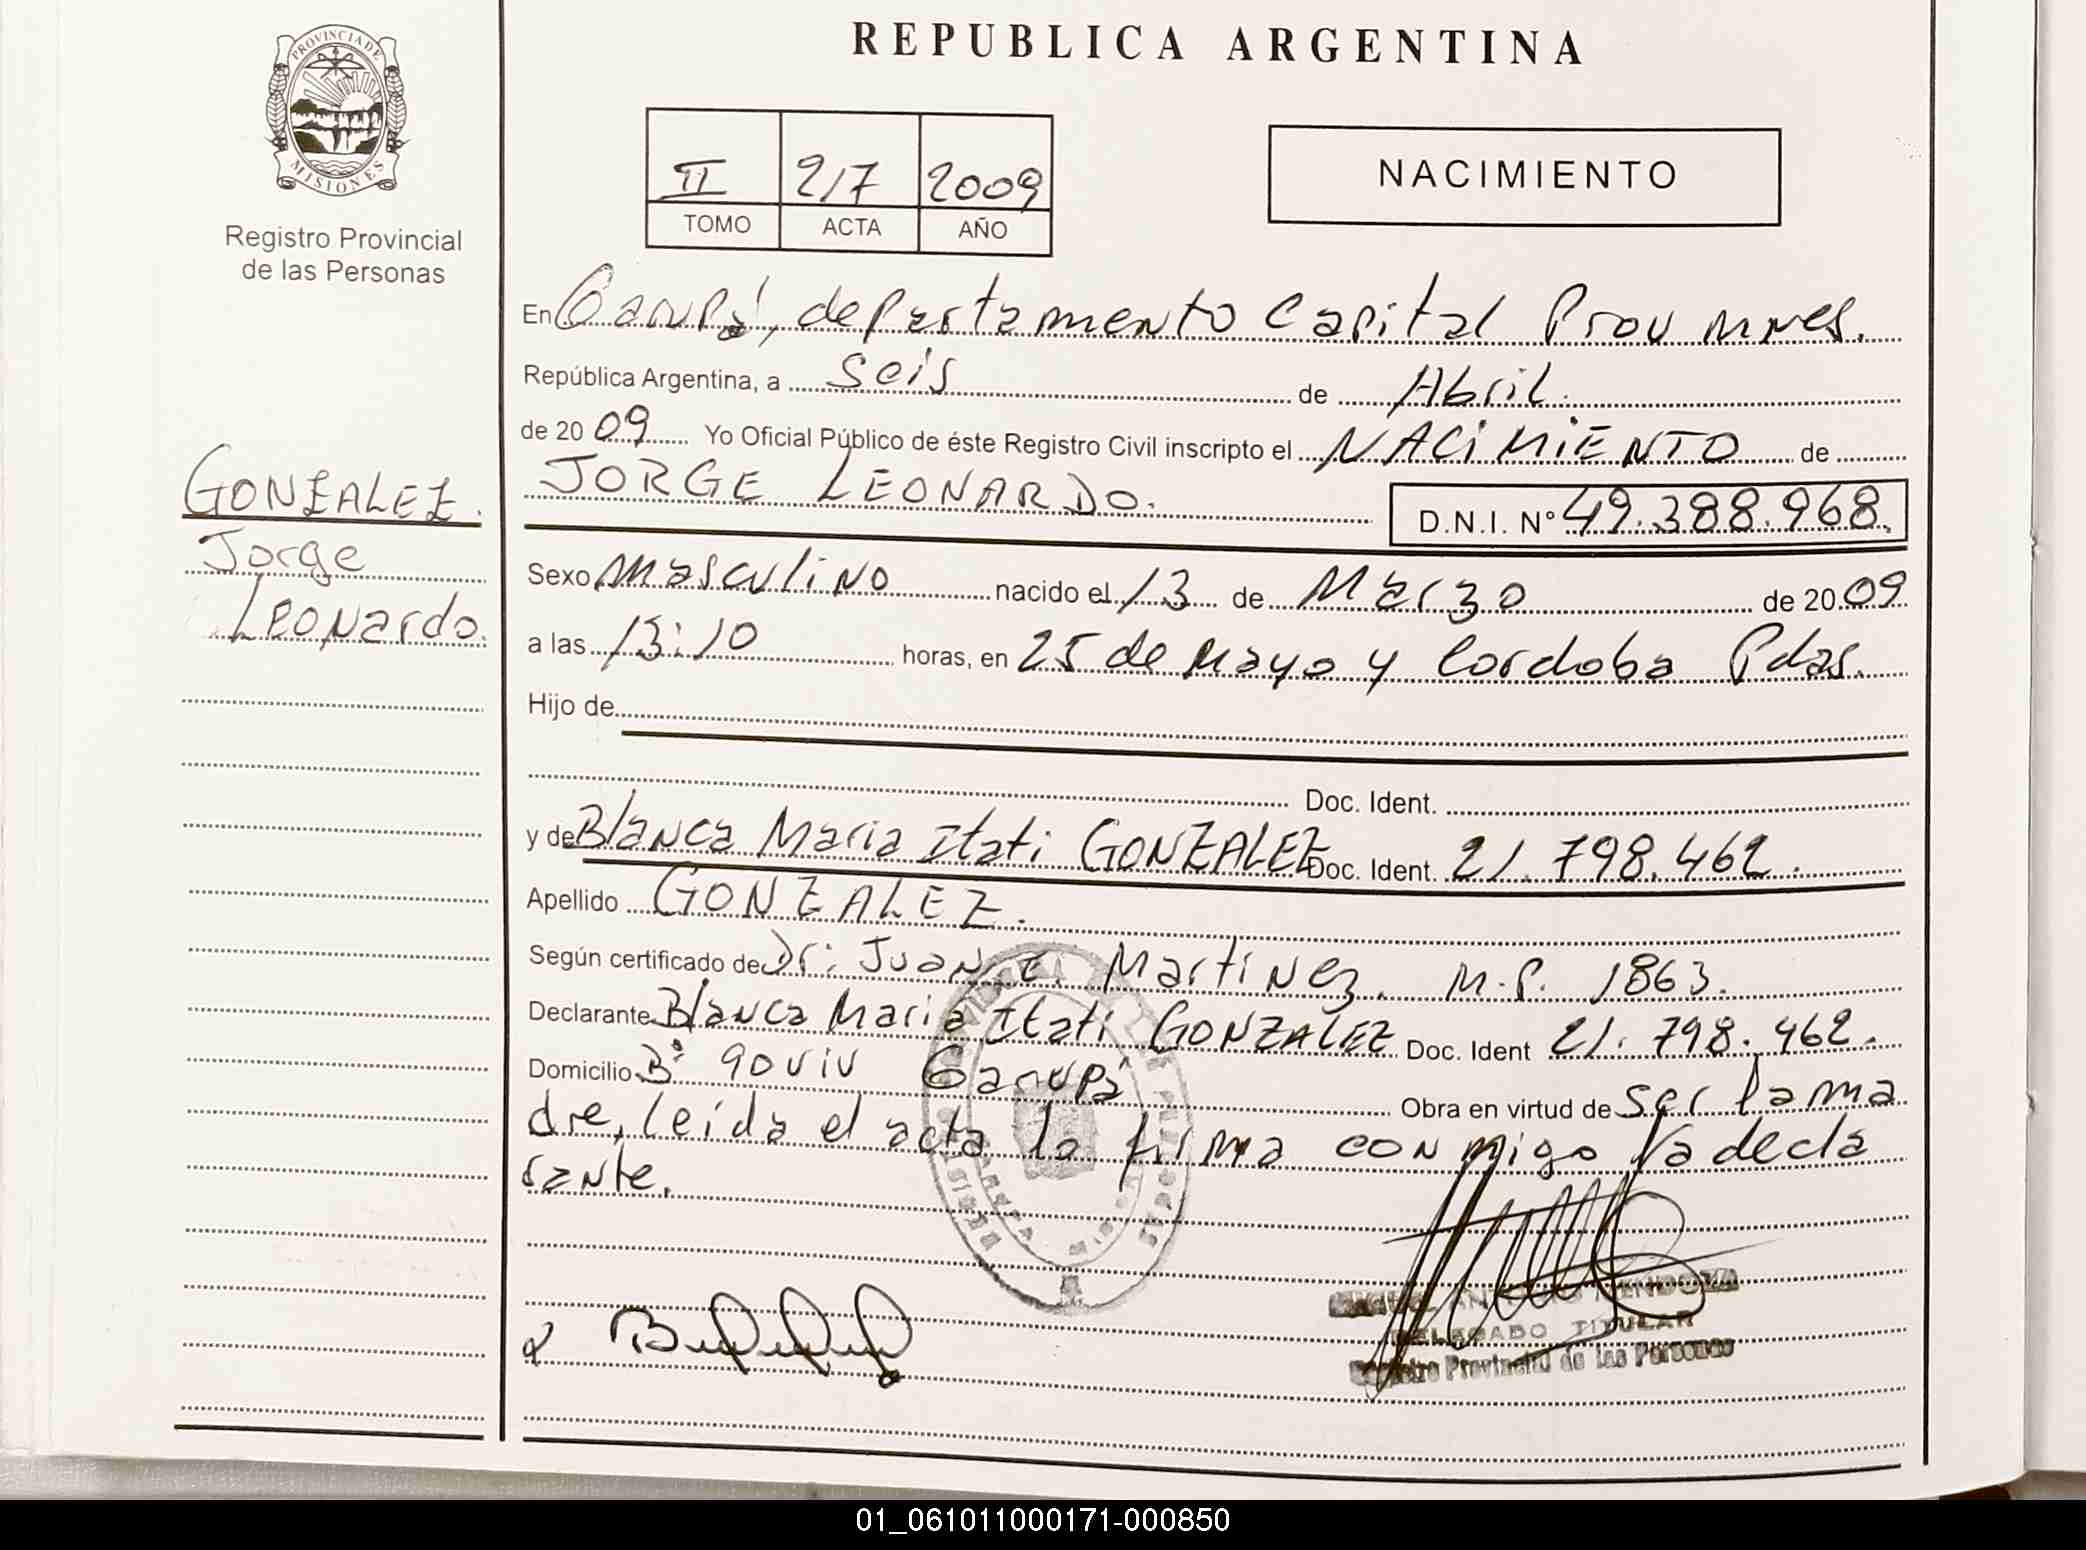 PROVINCIA DE
MISIONES
Registro Provincial
de las Personas
GONZALEZ.
Jorge
Leonardo.
REPUBLICA ARGENTINA
II 217 2009
TOMO ACTA AÑO
NACIMIENTO
En Garupá, departamento Capital Prov Mnes.
República Argentina, a seis de Abril.
de 2009 Yo Oficial Público de éste Registro Civil inscripto el NACIMIENTO de
JORGE LEONARDO. D.N.I. N° 49.388.968.
Sexo masculino nacido el 13 de Marzo de 2009
a las 13:10 horas, en 25 de Mayo y Cordoba Pdas.
Hijo de
Doc. Ident.
y de Blanca Maria Itati GONZALEZ Doc. Ident. 21.798.462.
Apellido GONZALEZ.
Según certificado de Dr: Juan E. Martinez. M.P. 1863.
Declarante Blanca Maria Itati GONZALEZ Doc. Ident 21.798.462.
Domicilio B° 90 viv Garupá Obra en virtud de ser la ma
dre, leida el acta la firma conmigo la decla
rante.
ANTONIO MENDOZA
DELEGADO TITULAR
Registro Provincial de las Personas
01_061011000171-000850